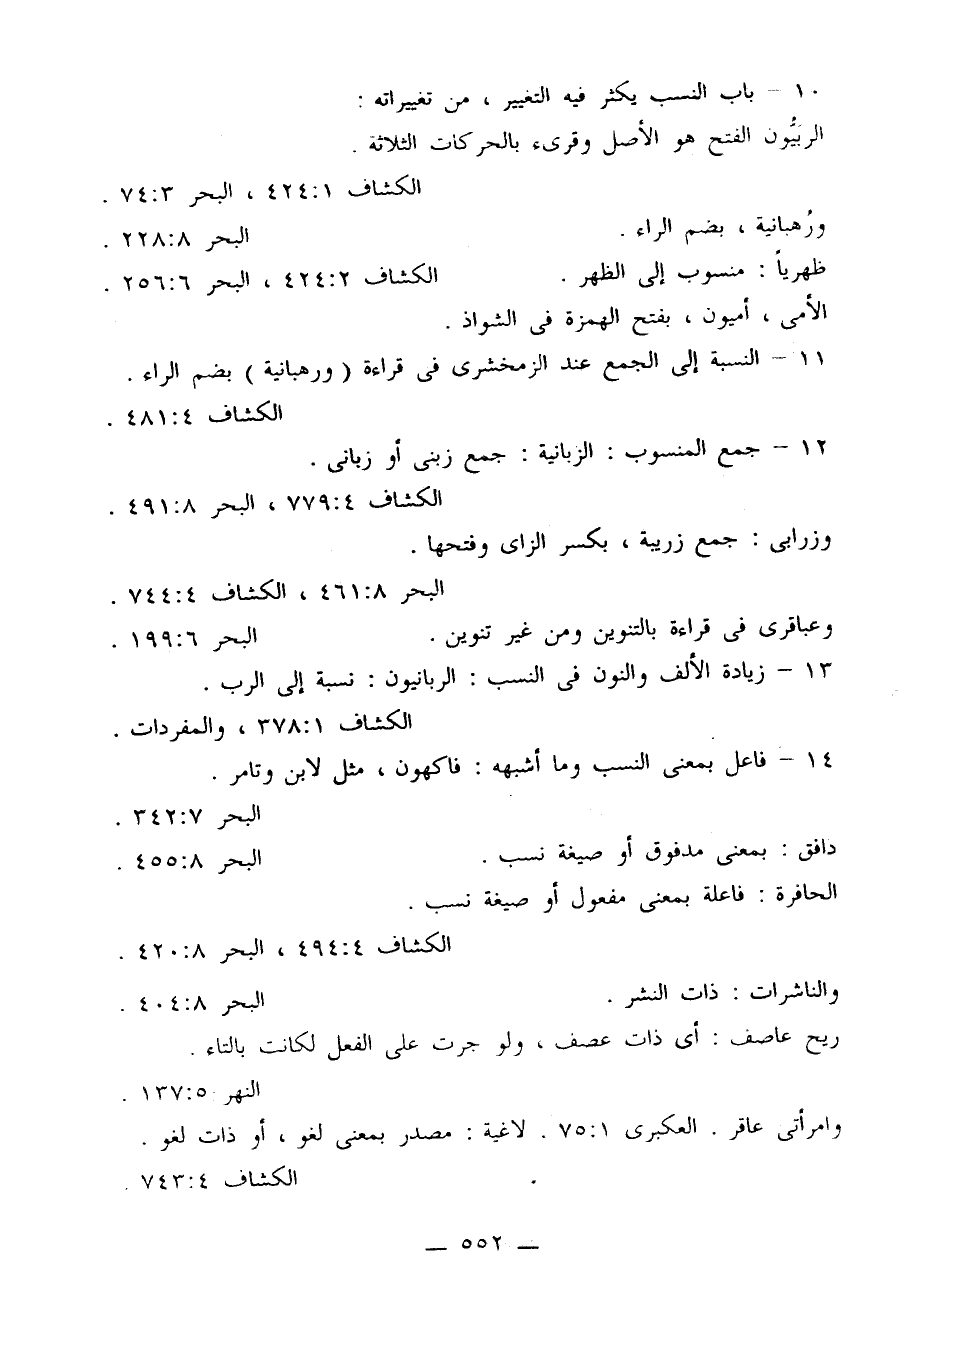 ١٠ – باب النسب يكثر فيه التغيير ، من تغييراته :
الربَيُّون الفتح هو الأصل وقرىء بالحركات الثلاثة .
الكشاف ٤٢٤:١ ، البحر ٧٤:٣ .
ورُهبانية ، بضم الراء . البحر ٢٢٨:٨ .
ظهرياً : منسوب إلى الظهر . الكشاف ٤٢٤:٢ ، البحر ٢٥٦:٦ .
الأمى ، أميون ، بفتح الهمزة فى الشواذ .
١١ – النسبة إلى الجمع عند الزمخشرى فى قراءة ( ورهبانية ) بضم الراء .
الكشاف ٤٨١:٤ .
١٢ – جمع المنسوب : الزبانية : جمع زبنى أو زبانى .
الكشاف ٧٧٩:٤ ، البحر ٤٩١:٨ .
وزرابى : جمع زريبة ، بكسر الزاى وفتحها .
البحر ٤٦١:٨ ، الكشاف ٧٤٤:٤ .
وعباقرى فى قراءة بالتنوين ومن غير تنوين . البحر ١٩٩:٦ .
١٣ – زيادة الألف والنون فى النسب : الربانيون : نسبة إلى الرب .
الكشاف ٣٧٨:١ ، والمفردات .
١٤ – فاعل بمعنى النسب وما أشبهه : فاكهون ، مثل لابن وتامر .
البحر ٣٤٢:٧ .
دافق : بمعنى مدفوق أو صيغة نسب . البحر ٤٥٥:٨ .
الحافرة : فاعلة بمعنى مفعول أو صيغة نسب .
الكشاف ٤٩٤:٤ ، البحر ٤٢٠:٨ .
والناشرات : ذات النشر . البحر ٤٠٤:٨ .
ريح عاصف : أى ذات عصف ، ولو جرت على الفعل لكانت بالتاء .
النهر ١٣٧:٥ .
وامرأتى عاقر . العكبرى ٧٥:١ . لاغية : مصدر بمعنى لغو ، أو ذات لغو .
الكشاف ٧٤٣:٤ .
— ٥٥٢ —